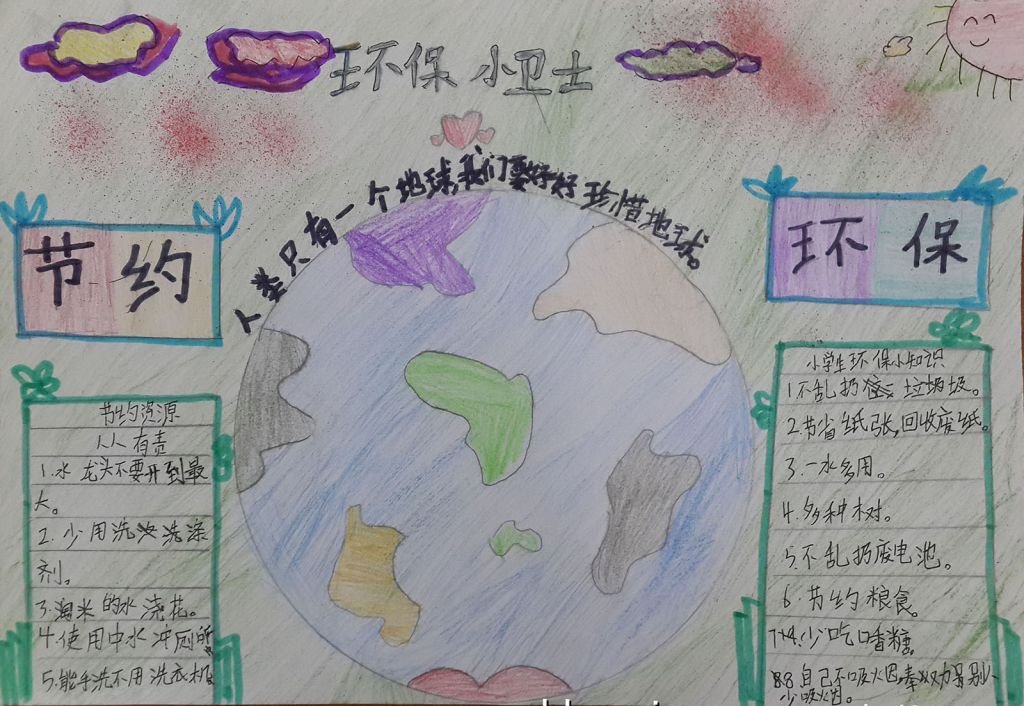 环保小卫士
人类只有一个地球,我们要好好珍惜地球。
节约
环保
节约资源
人人有责
1.水龙头不要开到最
大。
2.少用洗洗涤
剂。
3.淘米的水浇花。
4.使用中水冲厕所
5.能手洗不用洗衣机
小学生环保小知识
1.不乱扔垃圾。
2.节省纸张,回收废纸。
3.一水多用。
4.多种树。
5.不乱扔废电池。
6.节约粮食。
7.少吃口香糖。
8.自己不吸烟,奉劝别人
少吸烟。